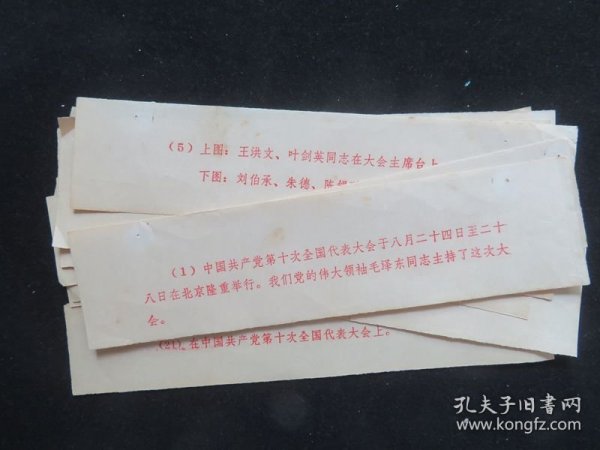 （5）上图：王洪文、叶剑英同志在大会主席台上
下图：刘伯承、朱德、陈
（1）中国共产党第十次全国代表大会于八月二十四日至二十
八日在北京隆重举行。我们党的伟大领袖毛泽东同志主持了这次大
会。
（21）在中国共产党第十次全国代表大会上。
孔夫子旧书网
www.kongfz.com